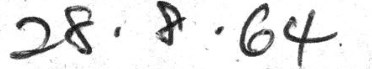 28. 8. 64.